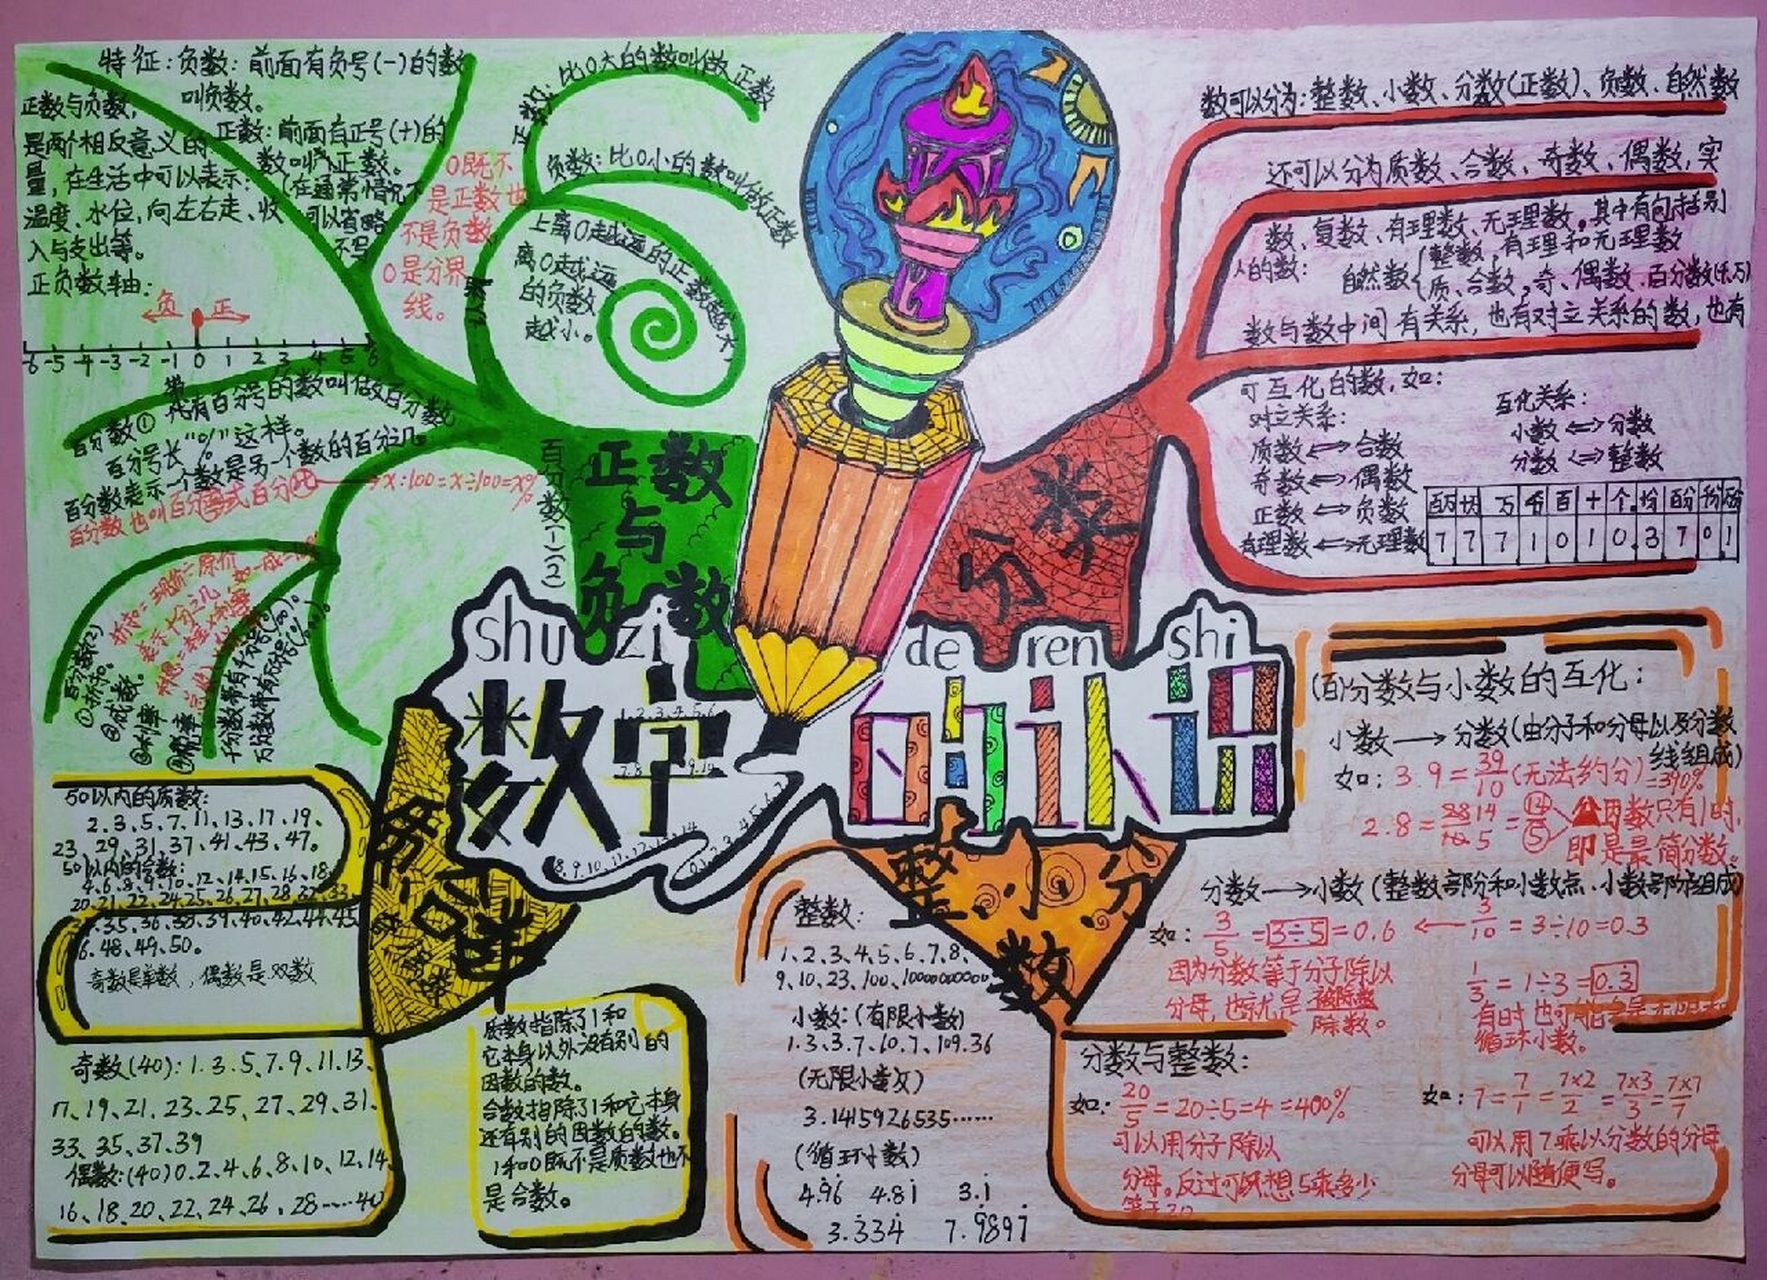 特征:负数:前面有负号(-)的数
叫负数。
正数:前面有正号(+)的
数叫正数。
(在通常情况下
可以省略
不写
正数与负数,
是两个相反意义的
量,在生活中可以表示:
温度、水位,向左右走、收
入与支出等。
正负数轴:
负 正
-6 -5 -4 -3 -2 -1 0 1 2 3 4 5 6
0既不
是正数也
不是负数,
0是分界
线。
认识
正数:比0大的数叫做正数
负数:比0小的数叫做正数
上离0越远的正数越大
离0越远
的负数
越小。
百分数①
带有百分号的数叫做百分数
百分号长"%"这样。
百分数表示一个数是另一个数的百分几。
百分数也叫百分率或百分比→x:100=x÷100=x%
百分数(1)(2)
百分数(2)
①折扣。
②成数。
③利率
正数
与
负数
分类
shu zi de ren shi
数字的认识
数可以分为:整数、小数、分数(正数)、负数、自然数
还可以分为质数、合数、奇数、偶数,实
数、复数、有理数、无理数。其中有包括别
人的数:
自然数{整数,有理和无理数
质、合数,奇、偶数、百分数(千,万)
数与数中间有关系,也有对立关系的数,也有
可互化的数,如:
对立关系:
质数⟺合数
奇数⟺偶数
正数⟺负数
有理数⟺无理数
互化关系:
小数⟺分数
分数⟺整数
万 千 百 十 个
7 7 7 1 0 1 0.3 7 0 1
50以内的质数:
2.3、5、7、11、13、17、19、
23、29、31、37、41、43、47。
50以内的合数:
4、6、8、9、10、12、14、15、16、18
20、21、22、24、25、26、27、28、32、33
35、36、38、39、40、42、44、45
6.48、49、50。
奇数是单数,偶数是双数
奇数(40):1.3.5、7、9、11、13、
17、19、21、23、25、27、29、31、
33、35、37、39
偶数:(40)0、2、4、6、8、10、12、14
16、18、20、22、24、26、28……40
质数指除了1和
它本身以外没有别的
因数的数。
合数指除了1和它本身
还有别的因数的数。
1和0既不是质数也不
是合数。
整、小、分
数
整数:
1、2、3、4、5、6、7、8、
9、10、23、100、10000000000
小数:(有限小数)
1.3、3.7、10.7、109.36
(无限小数)
3.1415926535……
(循环小数)
4.96 4.81 3.1
3.334 7.9891
(百)分数与小数的互化:
小数→分数(由分子和分母以及分数
线组成)
如:3.9=39/10(无法约分)=390%
2.8=28/10 14/5=14/5
两数只有1时,
即是最简分数。
分数→小数(整数部分和小数点、小数部分组成)
如:3/5=3÷5=0.6 ←3/10=3÷10=0.3
因为分数等于分子除以
分母,也就是被除数
除数。
1/3=1÷3=0.3
有时也可能
循环小数。
分数与整数:
如:20/5=20÷5=4=400%
可以用分子除以
分母。反过可以想5乘多少
等于20
如:7=7/1=7×2/2=7×3/3=7×7/7
可以用7乘以分数的分母
分母可以随便写。